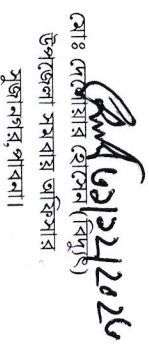 মোঃ দেলোয়ার হোসেন (বিদ্যুৎ)
উপজেলা সমবায় অফিসার
সুজানগর, পাবনা।